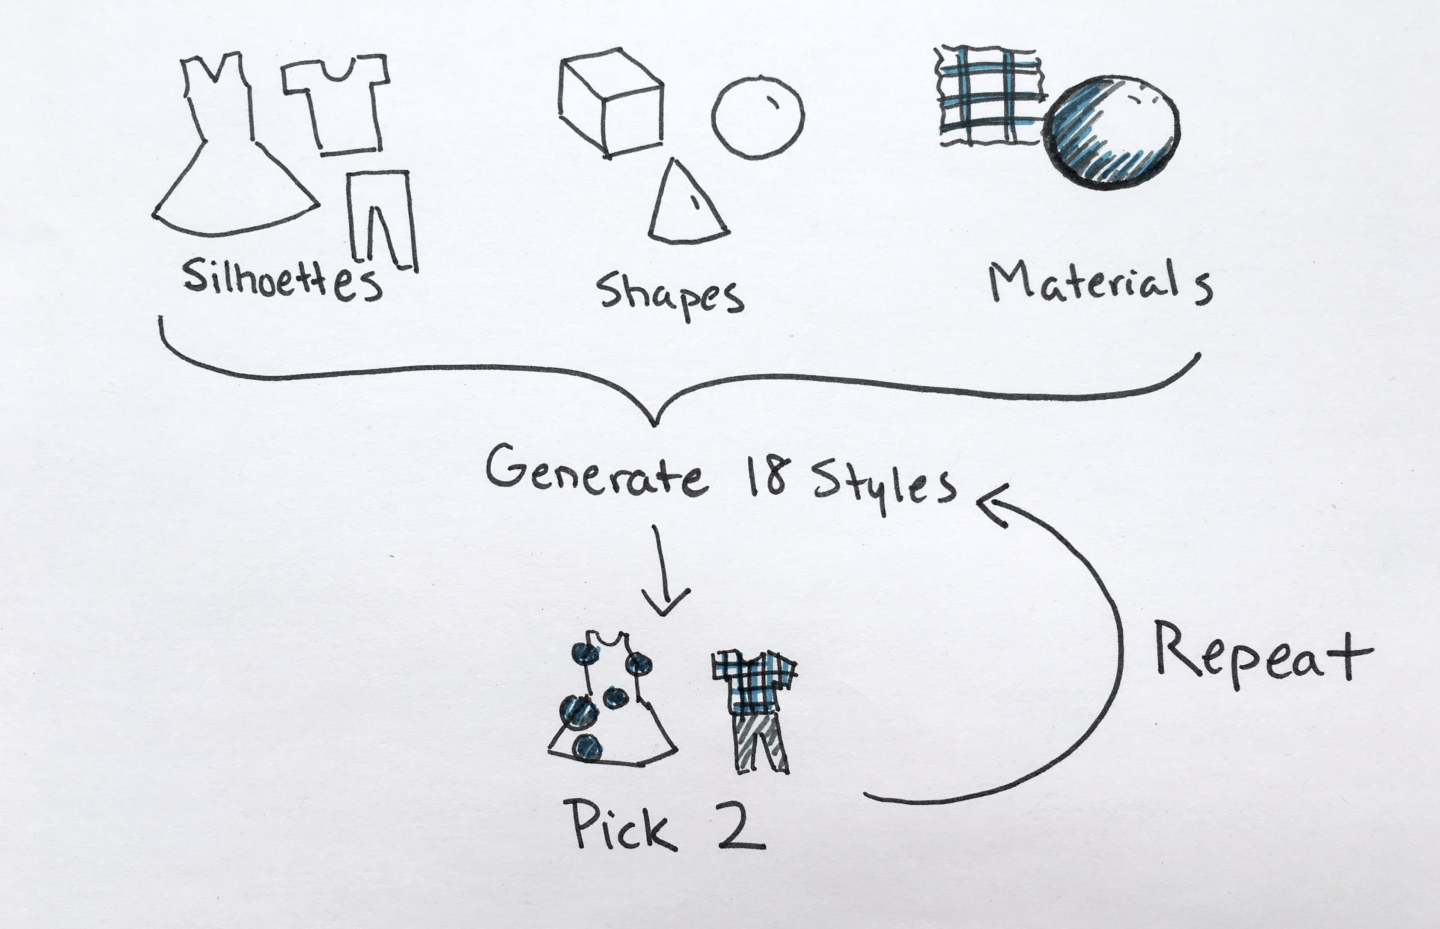 Silhoettes
Shapes
Materials
Generate 18 Styles
Repeat
Pick 2